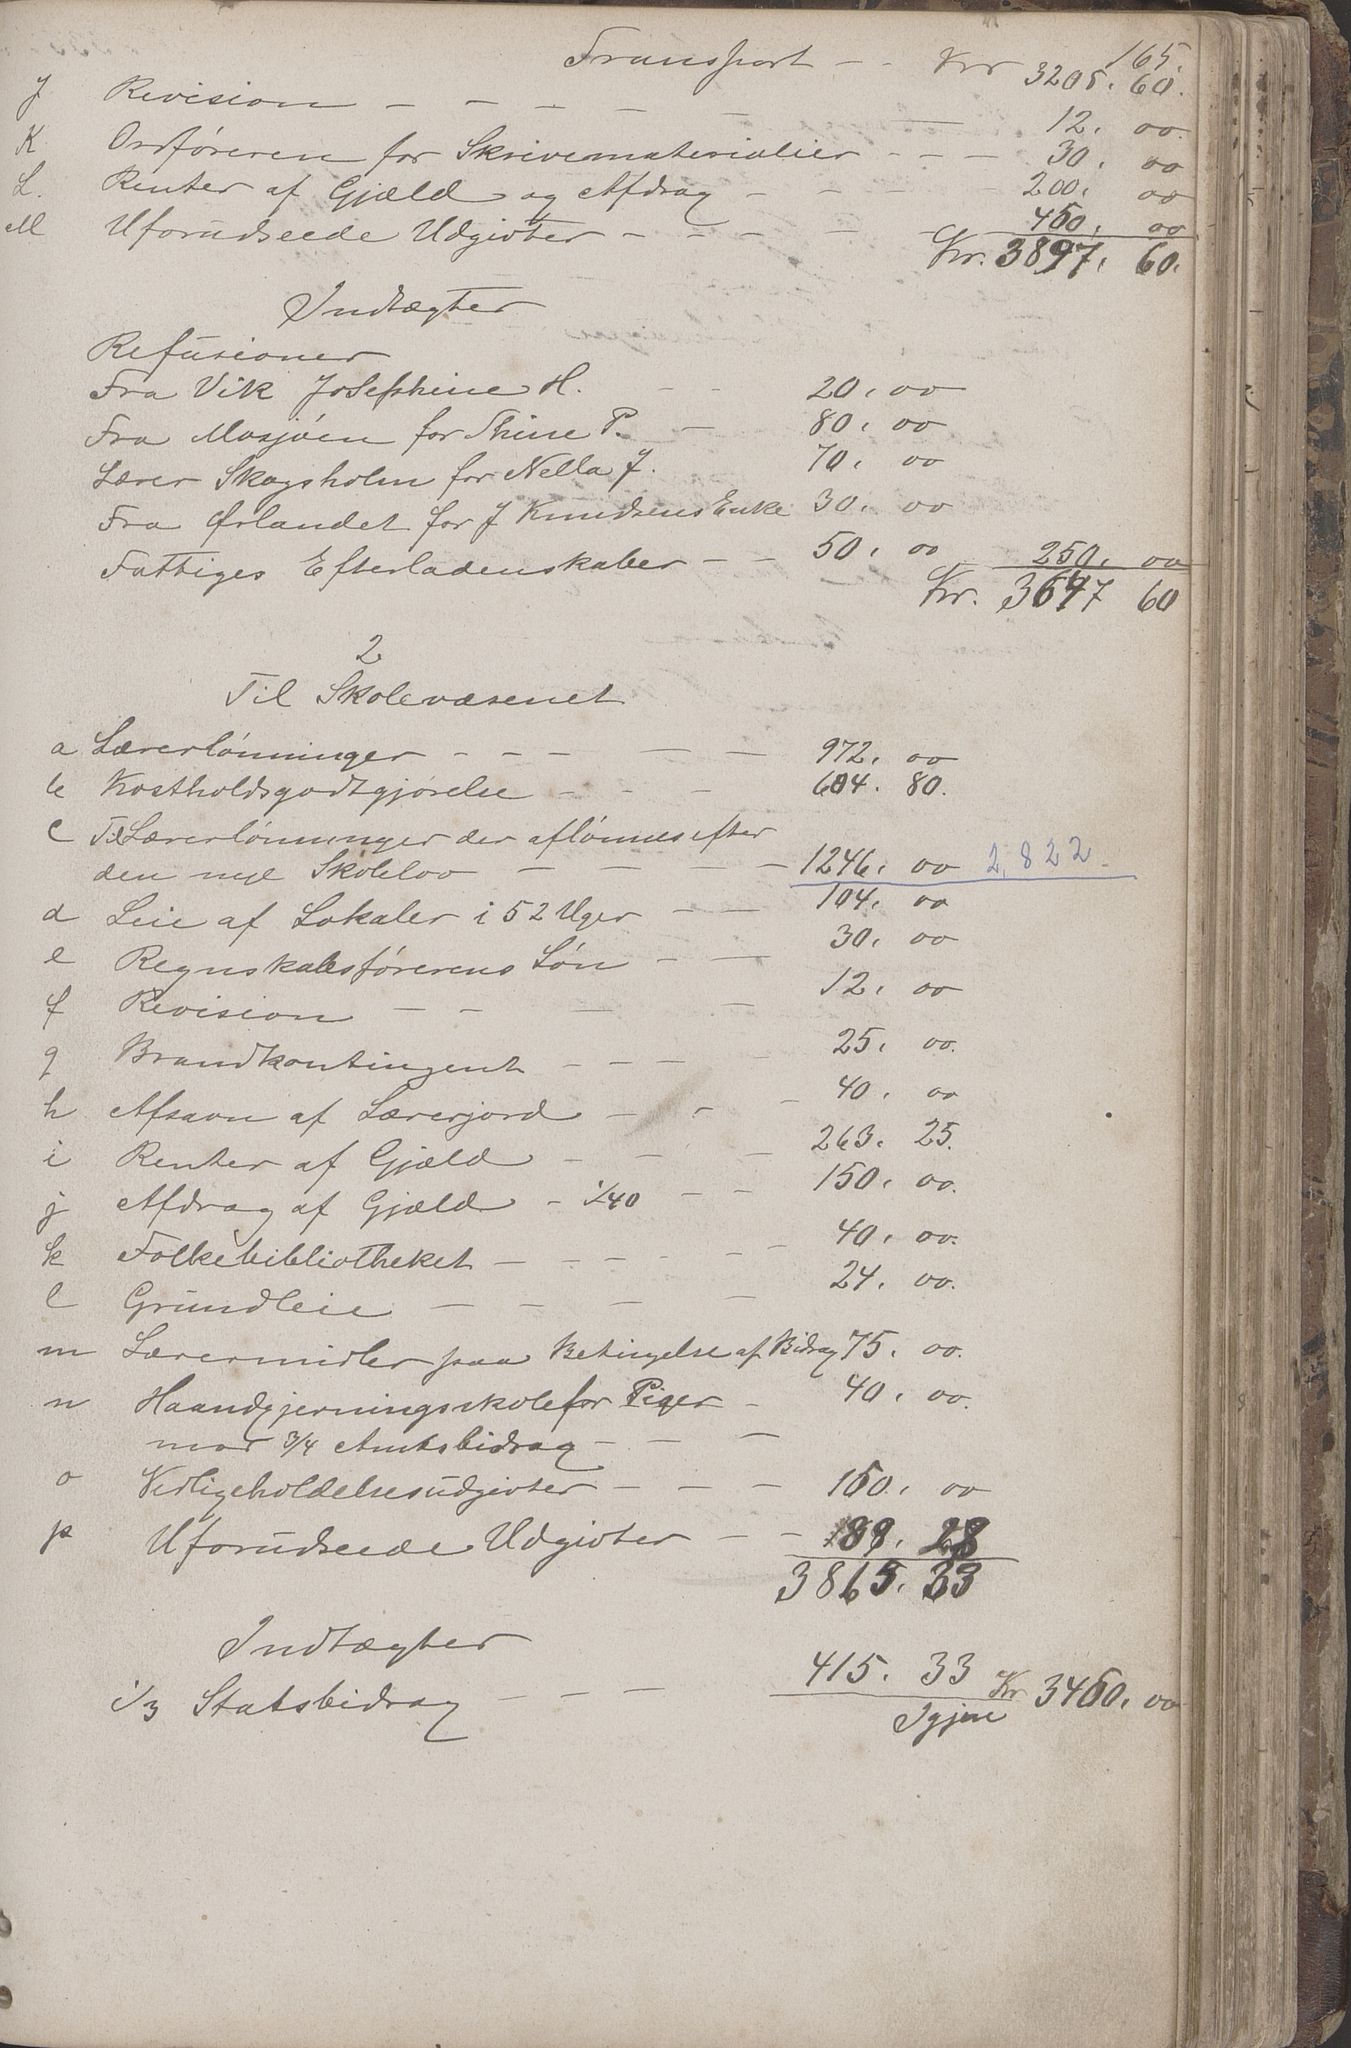 165.
Transport - - Kr 3205. 60.
J Revision - - - - - 12. 00.
K Ordføreren for Skrivematerialier - - - 30. 00
L. Renter af Gjæld og Afdrag - - - - 200. 00
M Uforudseede Udgivter - - - - - 450. 00
Kr. 3897. 60.
Indtægter
Refusioner
Fra Vik Josephine H. - - 20. 00
Fra Mosjøen for Thine P. - 80. 00
Lærer Skogsholm for Nella J. 70. 00
Fra Ørlandet for J Knudsens Enke 30. 00
Fattiges Efterladenskaber - - 50. 00 250. 00
Kr. 3647 60
2
Til Skolevæsenet
a Lærerlønninger - - - - - 972. 00
b Kostholdsgodtgjørelse - - - 604. 80.
c Til Lærerlønninger der aflønnes efter
den nye Skolelov - - - - - 1246. 00 2,822.
d Leie af Lokaler i 52 Uger - - 104. 00
e Regnskabsførerens Løn - - 30. 00
f Revision - - - - 12. 00
g Brandkontingent - - - - 25. 00.
h Afsavn af Lærerjord - - - 40. 00
i Renter af Gjæld - - - 263. 25.
j Afdrag af Gjæld - 1/40 - - 150. 00.
k Folkebibliotheket - - - - - 40. 00.
l Grundleie - - - - 24. 00.
m Læremidler paa Betingelse af Bidrag 75. 00.
n Haandgjerningsskole for Piger - 40. 00.
mod 3/4 Amtsbidrag - - -
o Vedligeholdelsesudgivter - - - 150. 00
p Uforudseede Udgivter - - 89. 28
3865. 33
Indtægter
1/3 Statsbidrag - - - 415. 33
Igjen Kr 3450. 00